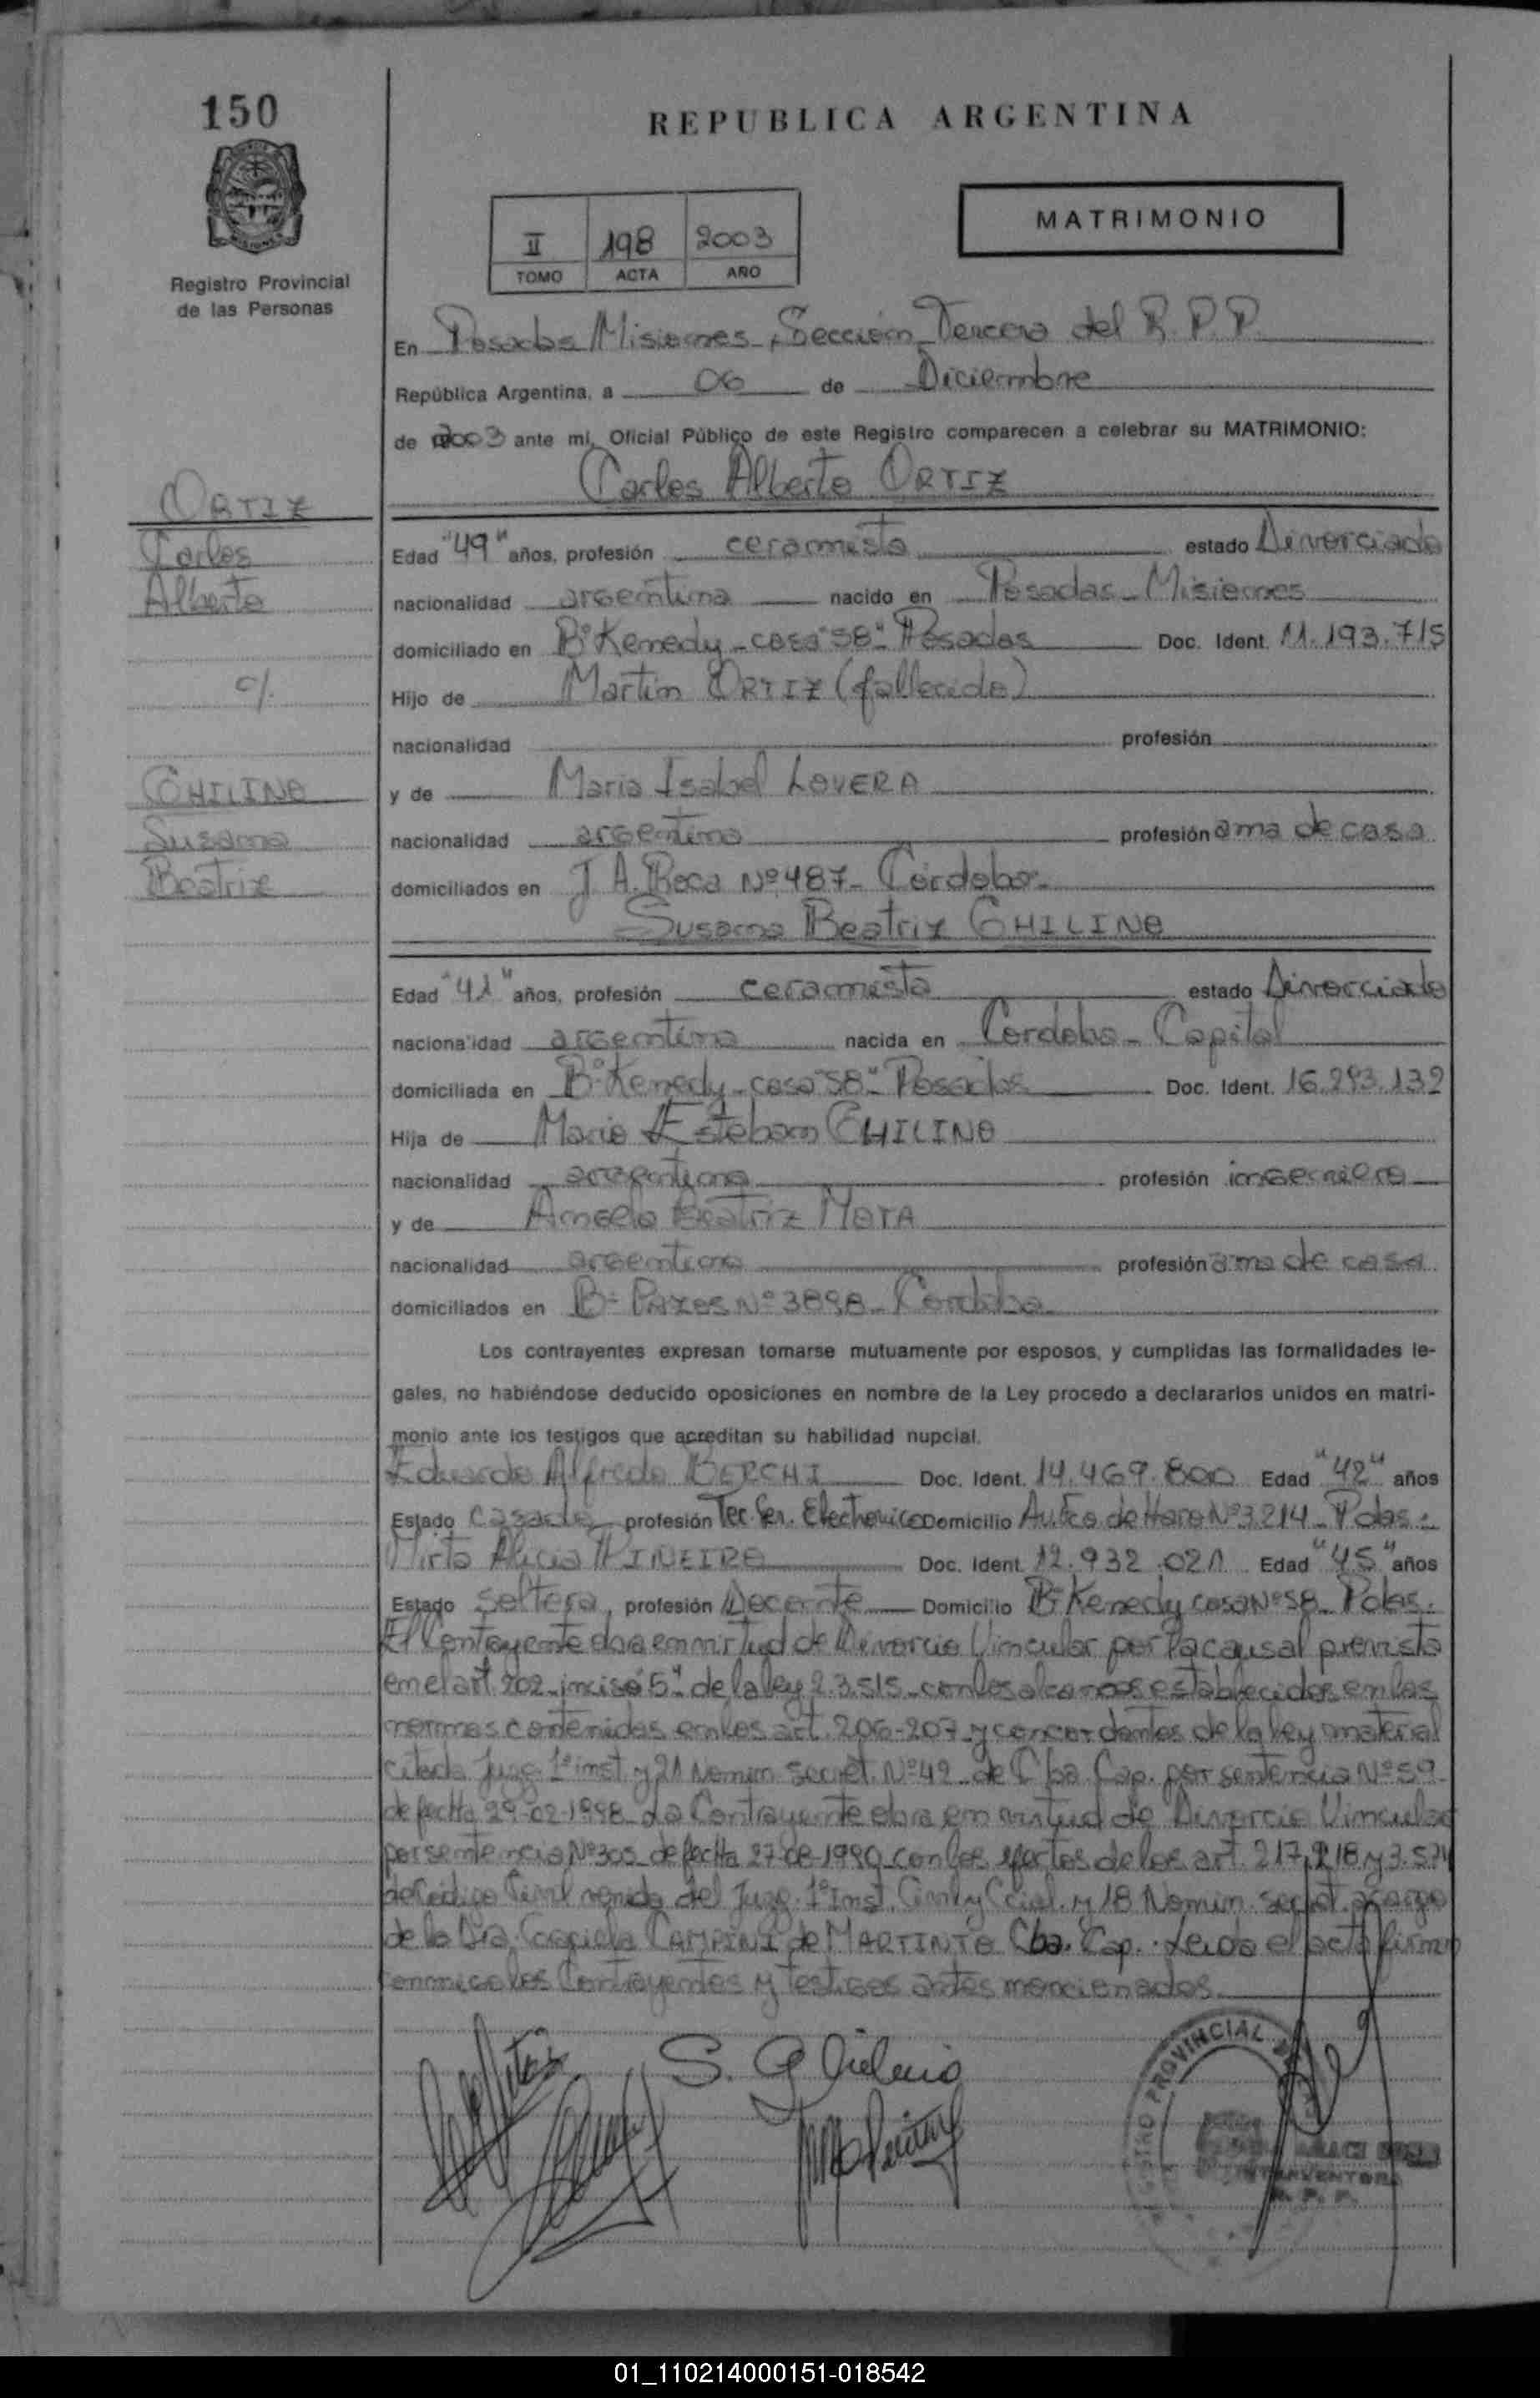 150
REPUBLICA ARGENTINA
MATRIMONIO
II 198 2003
TOMO ACTA AÑO
Registro Provincial
de las Personas
En Posadas Misiones, Sección Tercera del R.P.P.
República Argentina, a 06 de Diciembre
de 2003 ante mí, Oficial Público de este Registro comparecen a celebrar su MATRIMONIO:
Carlos Alberto ORTIZ
ORTIZ
Carlos
Alberto
c/.
CHILINO
Susana
Beatriz
Edad "49" años, profesión ceramista estado Divorciado
nacionalidad argentina nacido en Posadas - Misiones
domiciliado en Bº Kenedy - casa "58" - Posadas Doc. Ident. 11.193.715
Hijo de Martin ORTIZ (fallecido)
nacionalidad profesión
y de Maria Isabel LOVERA
nacionalidad argentina profesión ama de casa
domiciliados en J. A. Roca Nº 487 - Córdoba -
Susana Beatriz CHILINO
Edad "41" años, profesión ceramista estado Divorciada
nacionalidad argentina nacida en Cordoba - Capital
domiciliada en Bº Kenedy - casa "58" - Posadas Doc. Ident. 16.293.132
Hija de Mario Esteban CHILINO
nacionalidad argentina profesión ingeniero
y de Angela Beatriz MOYA
nacionalidad argentina profesión ama de casa
domiciliados en Bº Nº 3898 - Cordoba
Los contrayentes expresan tomarse mutuamente por esposos, y cumplidas las formalidades le-
gales, no habiéndose deducido oposiciones en nombre de la Ley procedo a declararlos unidos en matri-
monio ante los testigos que acreditan su habilidad nupcial.
Eduardo Alfredo BERCHI Doc. Ident. 14.469.800 Edad "42" años
Estado casado profesión Tec. Ser. Electronico Domicilio Av. Fco. de Haro Nº 3214 - Pdas.
Mirta Alicia PIÑEIRO Doc. Ident. 12.932.021 Edad "45" años
Estado soltera, profesión Docente Domicilio Bº Kenedy casa Nº 58 - Pdas.
El Contrayente obra en virtud de Divorcio Vincular por la causal prevista
en el art. 202 - inciso "5" - de la ley 23.515 - con los alcances establecidos en las
normas contenidas en los art. 206-207 y concordantes de la ley material
citada Juzg. 1º inst. y 21 Nomin. Secret. Nº 42 de Cba. Cap. por sentencia Nº 59
de fecha 29-02-1998 - La Contrayente obra en virtud de Divorcio Vincular
por sentencia Nº 305 - de fecha 27-08-1990 - con los efectos de los art. 217, 218 y 3.574
de Código Civil venida del Juzg. 1º Inst. Civil y Ccial. y 18 Nomin. secret. a cargo
de la Dra. Graciela CAMPINI de MARTINTO Cba. Cap. - Leida el acta firman
conmigo los Contrayentes y testigos antes mencionados.
S. Ghilino
REGISTRO PROVINCIAL
INTERVENTORA
R. P. P.
01_110214000151-018542